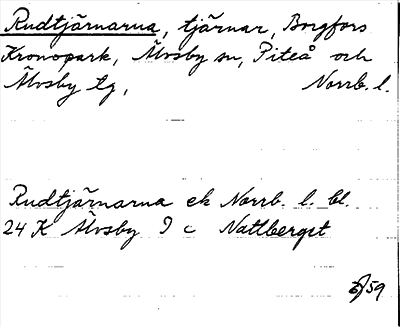 Rudtjärnarna, tjärnar, Borgfors
Kronopark, Älvsby sn, Piteå och
Älvsby tg, Norrb. l.
Rudtjärnarna ek Norrb. l. bl.
24 K Älvsby 9 c Nattberget
59